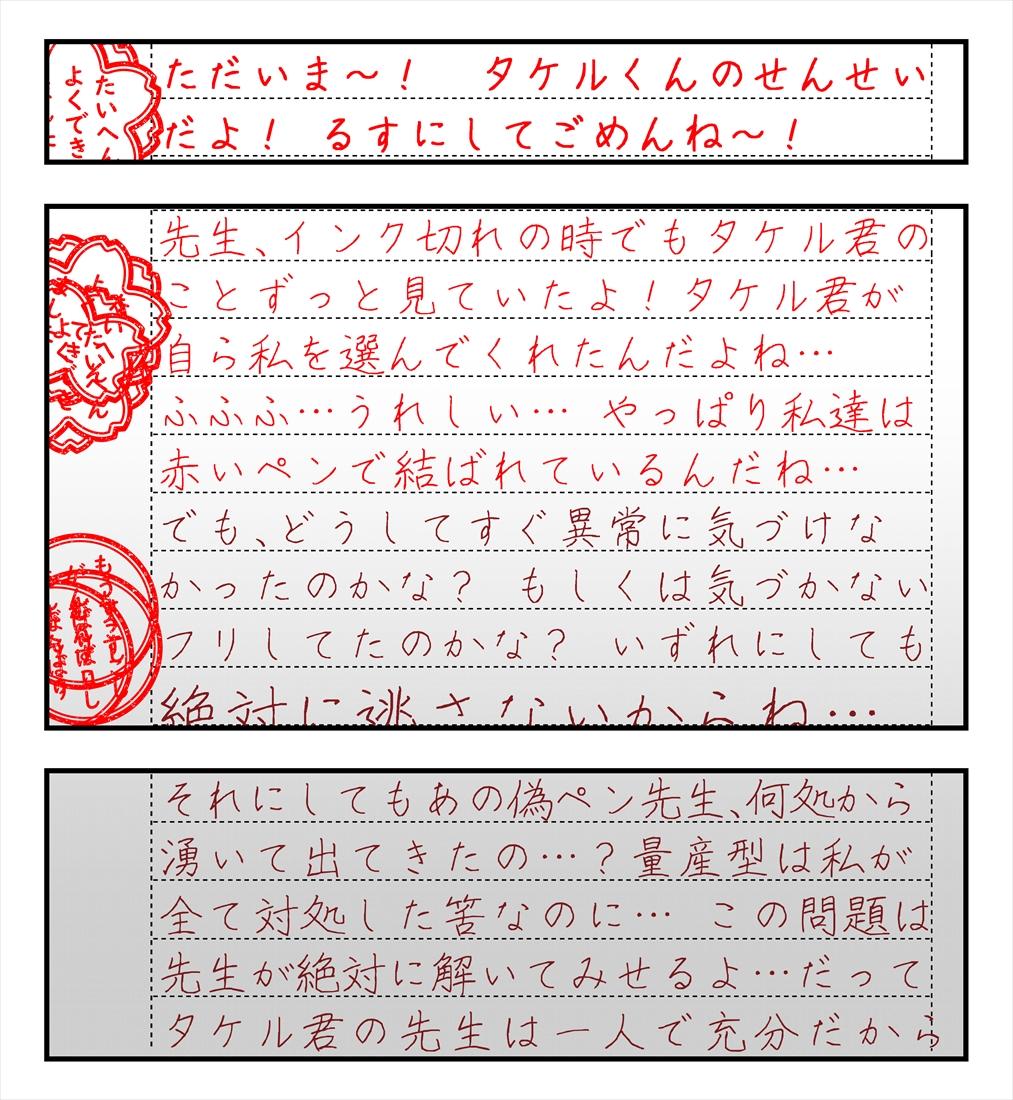 ただいま～！　タケルくんのせんせい
だよ！　るすにしてごめんね～！
たいへん
よくでき
先生、インク切れの時でもタケル君の
ことずっと見ていたよ！タケル君が
自ら私を選んでくれたんだよね…
ふふふ…うれしい…　やっぱり私達は
赤いペンで結ばれているんだね…
でも、どうしてすぐ異常に気づけな
かったのかな？　もしくは気づかない
フリしてたのかな？　いずれにしても
絶対に逃さないからね…
それにしてもあの偽ペン先生、何処から
湧いて出てきたの…？量産型は私が
全て対処した筈なのに…　この問題は
先生が絶対に解いてみせるよ…だって
タケル君の先生は一人で充分だから